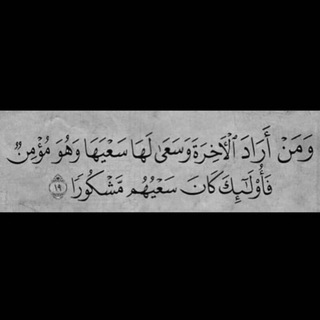 وَمَنْ أَرَادَ ٱلْءَاخِرَةَ وَسَعَىٰ لَهَا سَعْيَهَا وَهُوَ مُؤْمِنٌ
فَأُو۟لَٰٓئِكَ كَانَ سَعْيُهُم مَّشْكُورًا ١٩